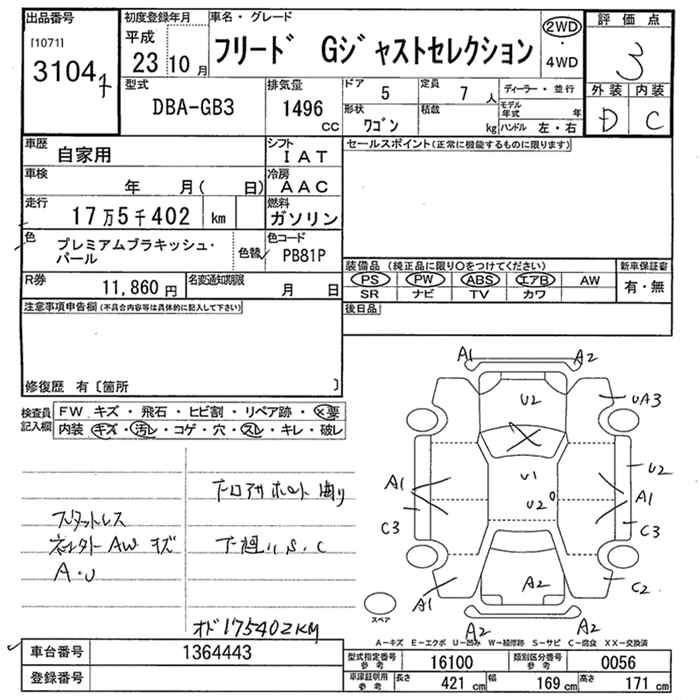 出品番号
[1071]
3104
初度登録年月
平成
23 10 月
車名・グレード
フリード Gジャストセレクション
2WD
・
4WD
評価点
3
外装 内装
D C
型式
DBA-GB3
排気量
1496
CC
ドア
5
定員
7 人
ディーラー・並行
形状
ワゴン
積載
kg
モデル年式
年
ハンドル 左・右
車歴
自家用
シフト
IAT
車検
年 月( 日)
冷房
AAC
走行
17万5千402 km
燃料
ガソリン
色
プレミアムブラキッシュ・パール
色替
色コード
PB81P
R券
11,860 円
名変通知期限
月 日
セールスポイント(正常に機能するものに限ります)
装備品 (純正品に限り○をつけてください)
PS PW ABS エアB AW
SR ナビ TV カワ
新車保証書
有・無
後日品
注意事項申告欄(不具合内容等は具体的に記入して下さい)
修復歴 有〔箇所 〕
検査員記入欄
FW キズ・飛石・ヒビ割・リペア跡・×要
内装 キズ・汚レ・コゲ・穴・スレ・キレ・破レ
スタットレス
AW キズ
A・U
下廻りS.C
オド175402KM
A1 A2
U2
UA3
X
A1
U1
U2
U2
A1
C3
C3
A1
A2
C2
A2 A2
スペア
A-キズ E-エクボ U-凹み W-補修跡 S-サビ C-腐食 XX-交換済
車台番号
1364443
登録番号
型式指定番号 参考
16100
類別区分番号 参考
0056
車庫証明用 参考
長さ 421 cm
幅 169 cm
高さ 171 cm